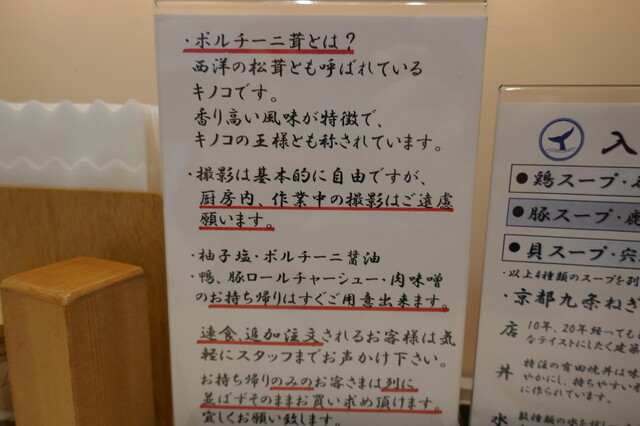 ・ポルチーニ茸とは?
西洋の松茸とも呼ばれている
キノコです。
香り高い風味が特徴で、
キノコの王様とも称されています。
・撮影は基本的に自由ですが、
厨房内、作業中の撮影はご遠慮
願います。
・柚子塩・ポルチーニ醤油
・鴨、豚ロールチャーシュー・肉味噌
のお持ち帰りはすぐご用意出来ます。
連食、追加注文されるお客様は気
軽にスタッフまでお声かけ下さい。
お持ち帰りのみのお客さまは列に
並ばずそのままお買い求め頂けます。
宜しくお願い致します。
入
●鶏スープ・
●豚スープ・
●貝スープ・宍
・以上4種類のスープを別
・京都九条ねぎ
店 10年、20年経っても
なテイストにしたく建築
丼 特注の有田焼丼は味
やかにし、持ちやすい
に作られています。
水